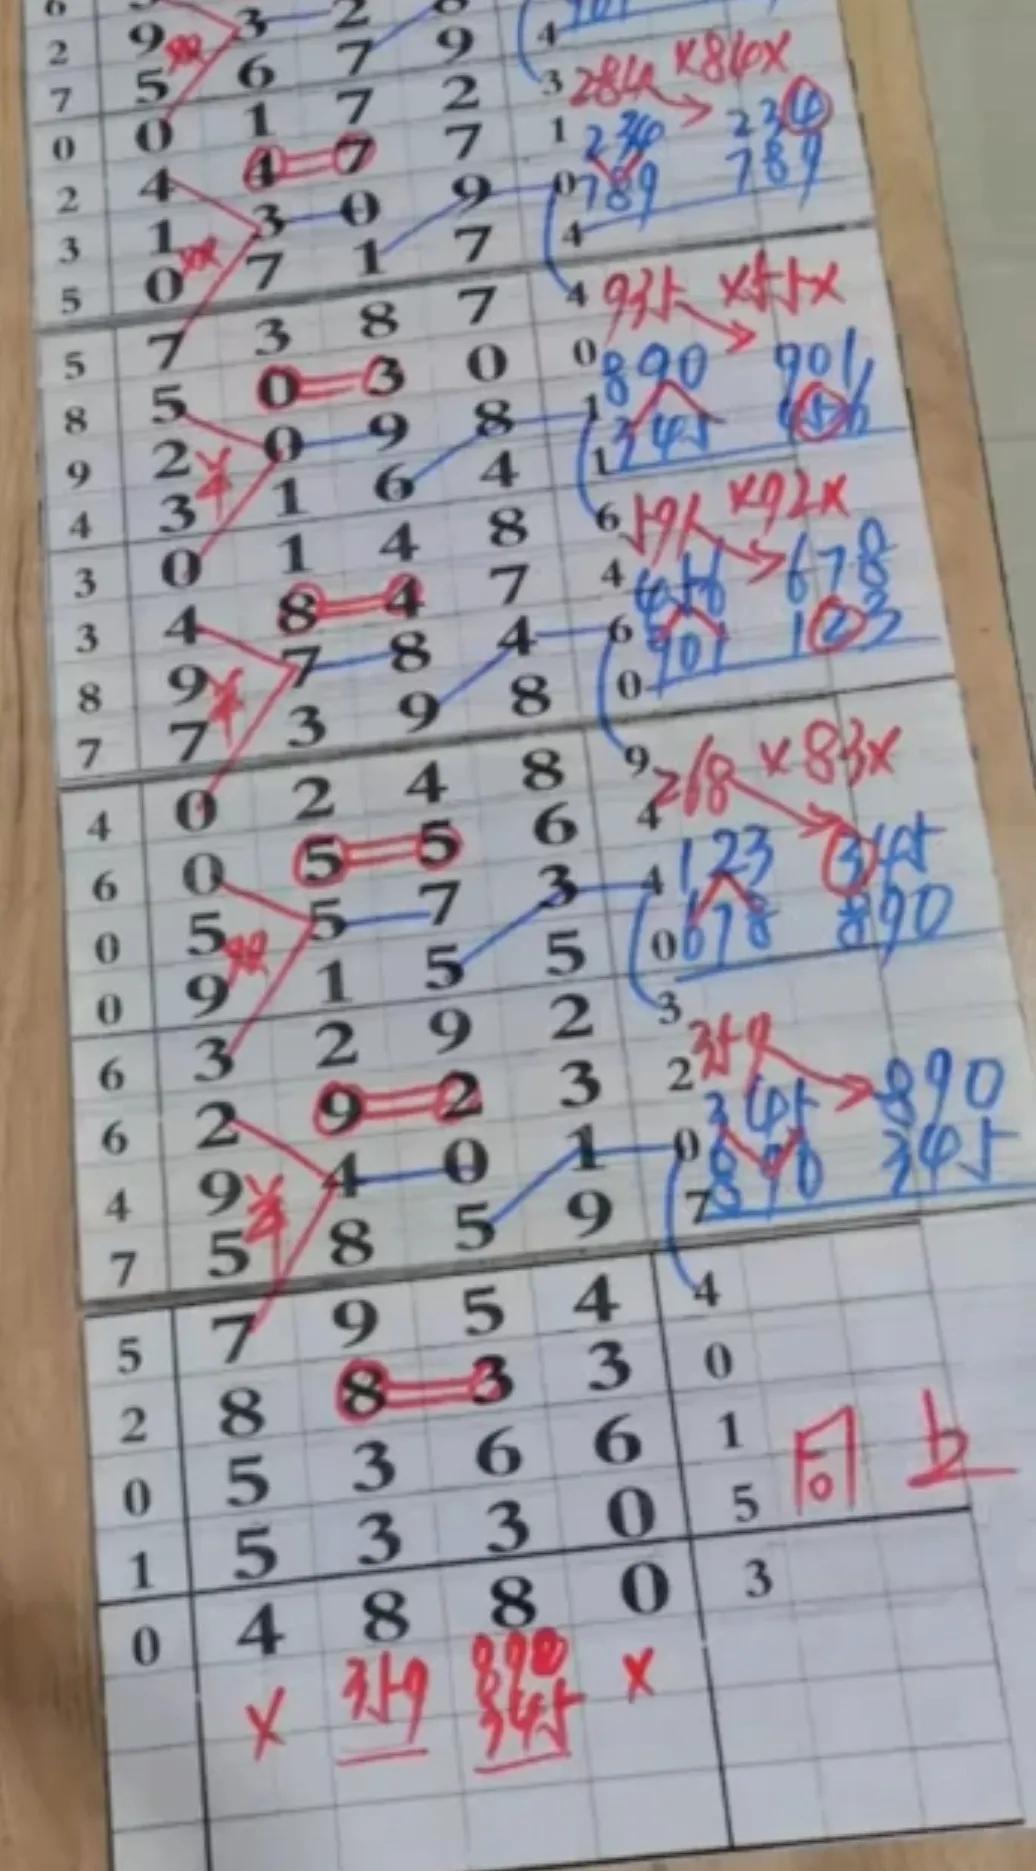 2 9 3 2 8 4
7 5 6 7 9 3 284 ×84×
0 0 1 7 2 1 234 234
2 4 4 7 7 0 789 789
3 1 3 0 9 4
5 0 7 1 7 4 935 ×55×
5 7 3 8 7 0 890 901
8 5 0 3 0 1 345 456
9 2 0 9 8 1
4 3 1 6 4 6 591 ×92×
3 0 1 4 8 4 456 678
3 4 8 4 7 6 901 123
8 9 7 8 4 0
7 7 3 9 8 9 268 ×83×
4 0 2 4 8 4 123 345
6 0 5 5 6 4 678 890
0 5 5 7 3 0
0 9 1 5 5 3 359
6 3 2 9 2 2 345 890
6 2 9 2 3 0 890 345
4 9 4 0 1 7
7 5 8 5 9 4
5 7 9 5 4 0
2 8 8 3 3 1 同上
0 5 3 6 6 5
1 5 3 3 0 3
0 4 8 8 0
× 359 890 ×
345